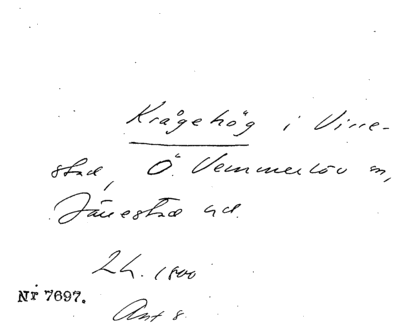 Krågehög i Virre-
stad, Ö. Vemmerlöv sn,
Järrestad hd.
LH. 1800
Nr 7697.
Ant 8.